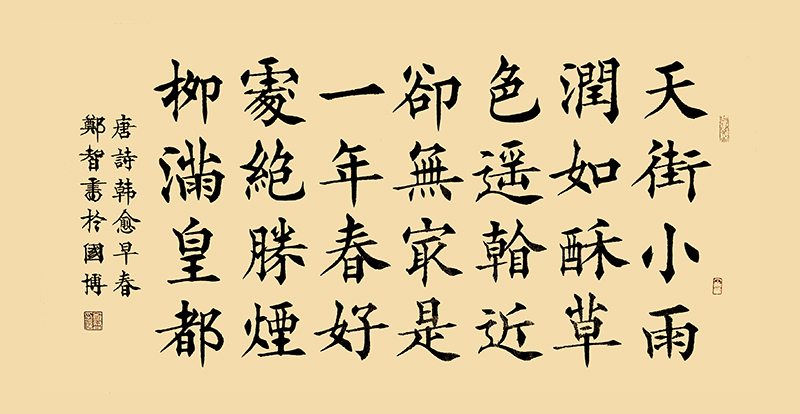 天街小雨
潤如酥草
色遥看近
卻無㝡是
一年春好
處絶勝煙
柳滿皇都
唐詩韩愈早春
鄭智書於國博